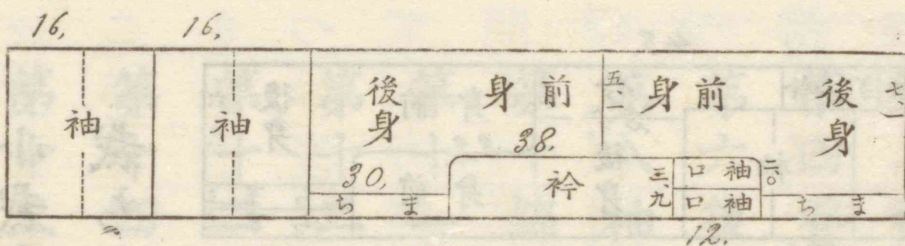 16,
16,
袖
袖
後身
身前
五、一
身前
後身
七、一
38.
30,
衿
三、九
口袖
口袖
二、〇
ちま
ちま
12.